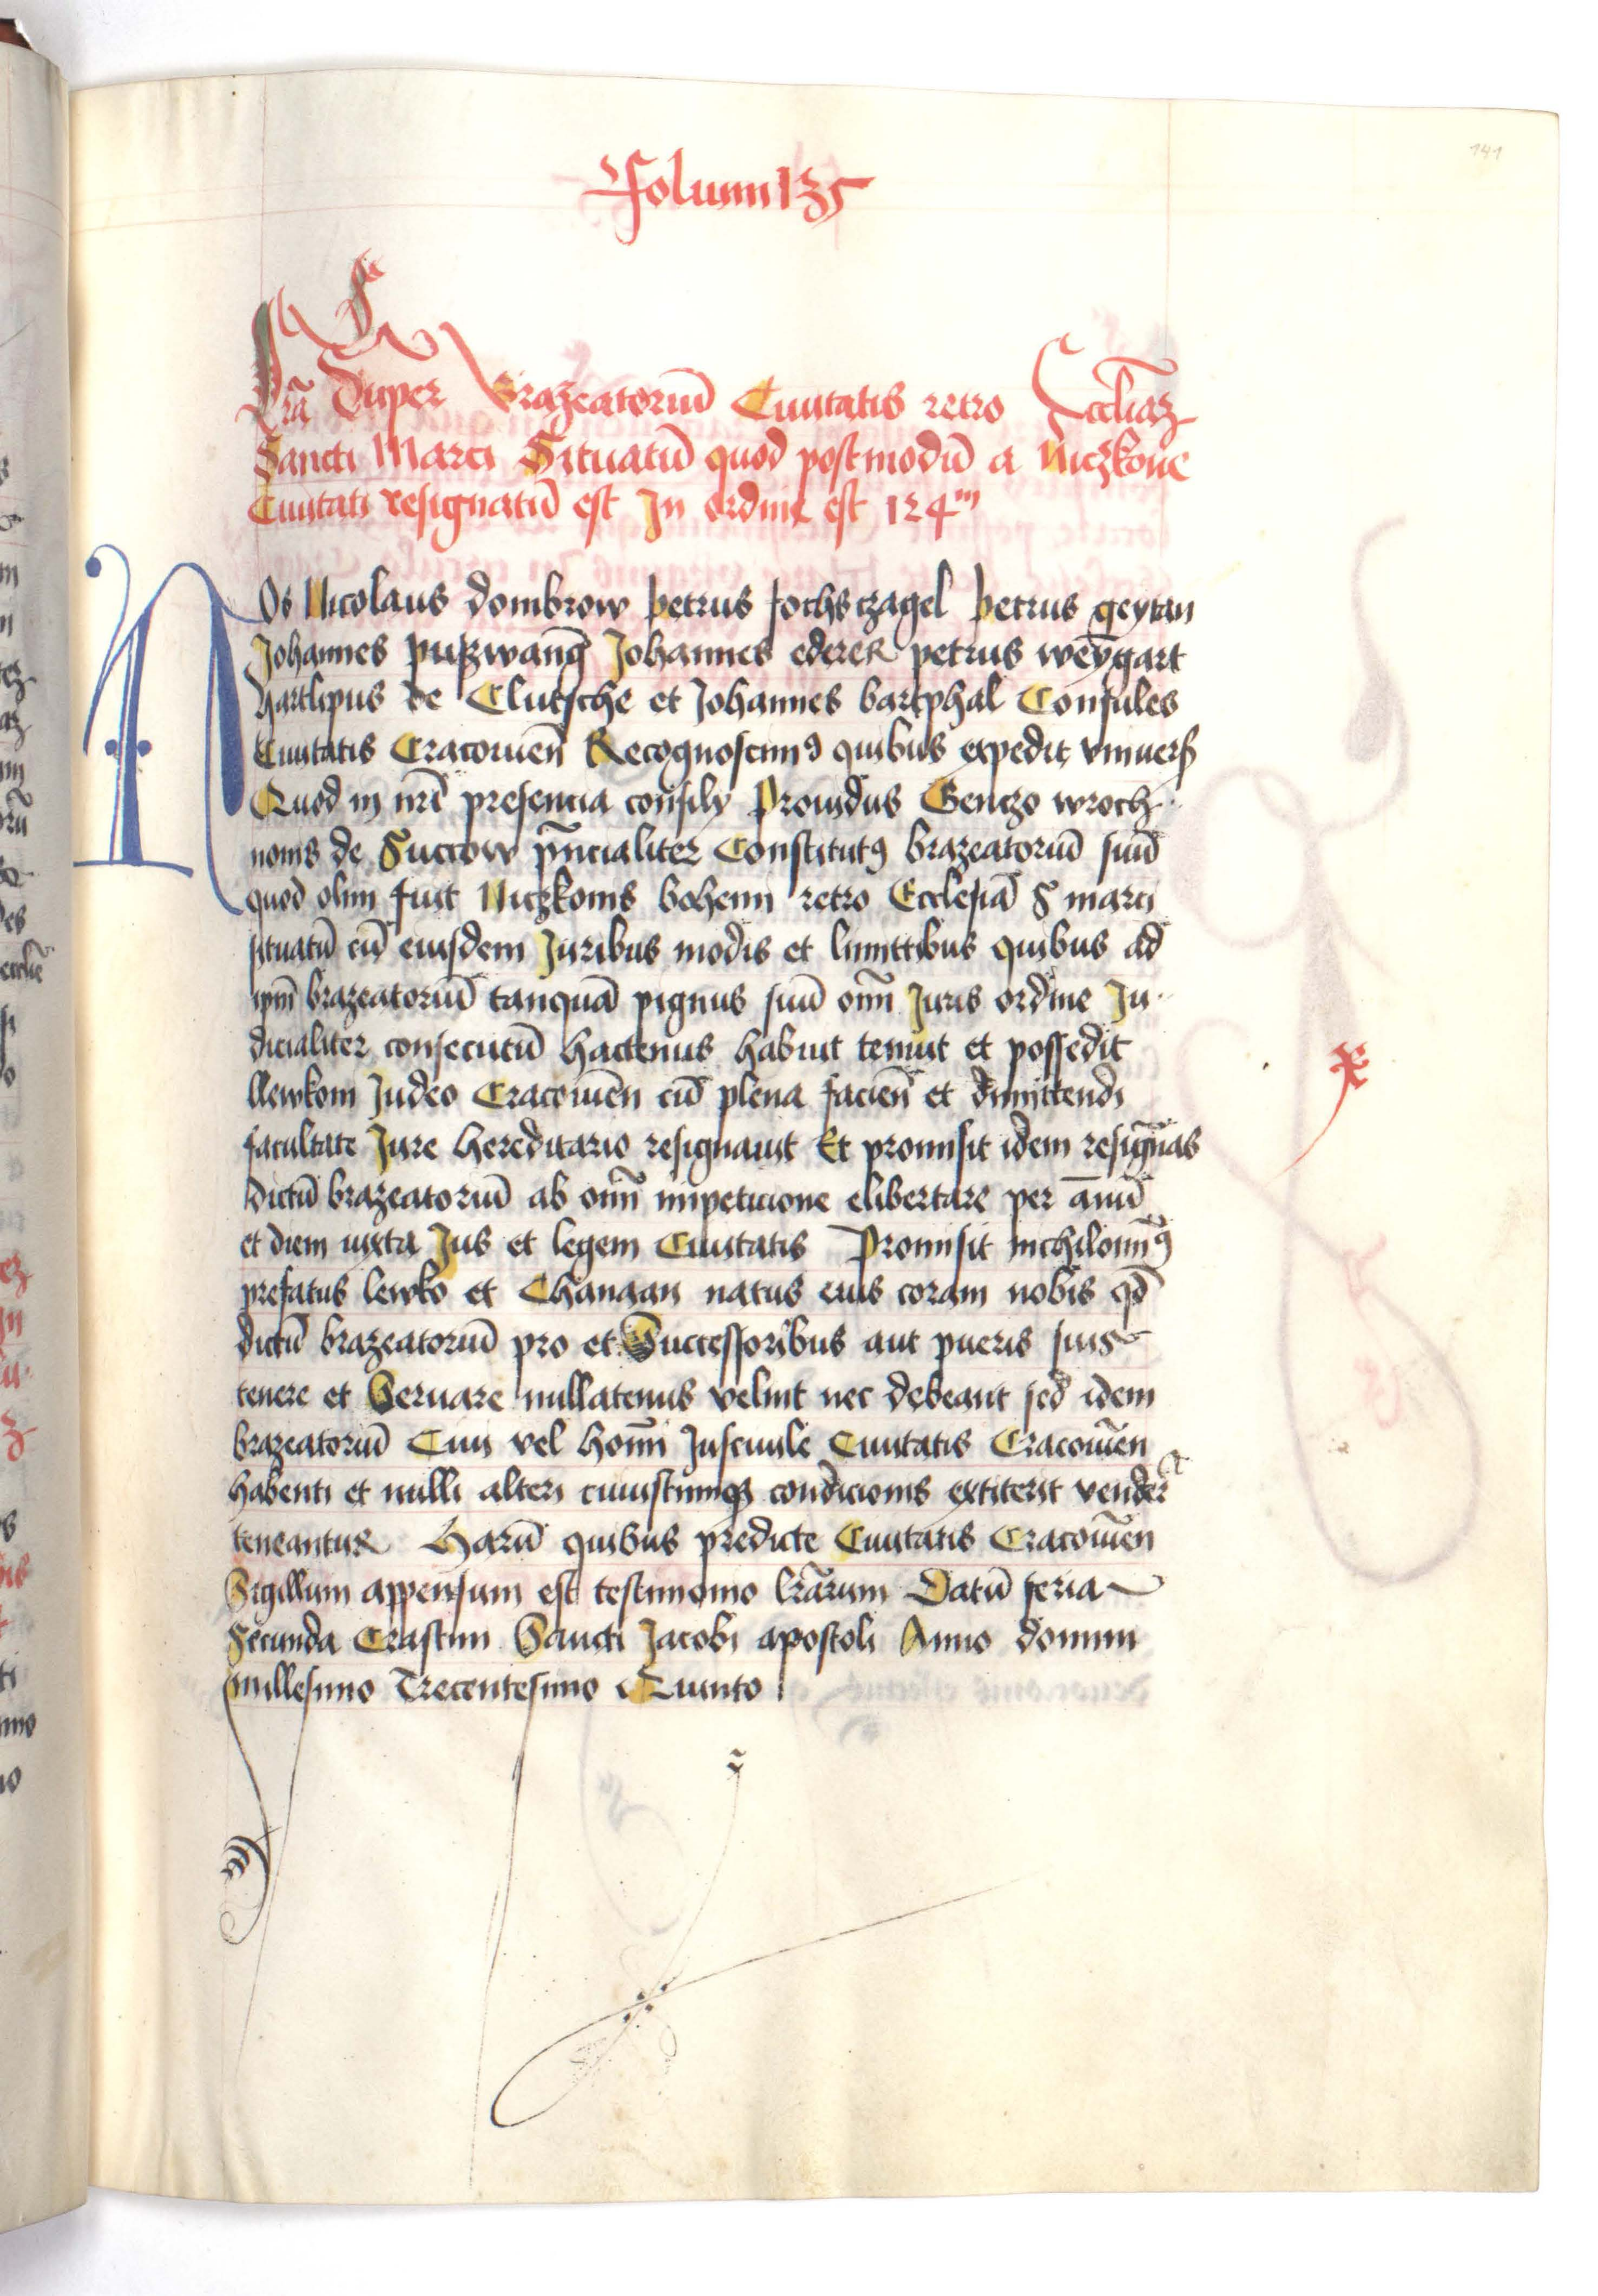 141
Folium 135
Lr̃a Super Brazeatoriū Ciuitatis retro Eccliaȝ
Sancti Marci Situatū quod postmodū a Niczkone
Ciuitati resignatū est In ordine est 124m
NOs Nicolaus dombrow petrus fochsczagel petrus geytan
Johannes puszwang Johannes ederer petrus weygart
hartlipus de Clutsche et Johannes bartphal Consules
Ciuitatis Cracouieñ Recognoscimꝰ quibus expedit vniuers̃
Quod in nr̃i presencia consily Prouidus Genczo wroch
nonis de Succow pñcialiter Constitutꝰ brazeatoriū suū
quod olim fuit Niczkonis bohemi retro Ecclesiā S marci
situatū cū eiusdem Juribus modis et limittibus quibus ad
ip̄m brazeatoriū tanquā pignus suū om̄i Juris ordine Ju
dicialiter consecutū hactenus habuit tenuit et possedit
llewkoni Judeo Cracouieñ cū plena facieñ et dimittendi
facultate Jure hereditario resignauit Et promisit idem resignās
dictū brazeatoriū ab om̄i impeticione elibertare per añū
et diem iuxta Jus et legem Ciuitatis Promisit nichilominꝰ
prefatus lewko et Chanaan natus eius coram nobis qd̄
dictū brazeatoriū pro et Successoribus aut pueris suis
tenere et Seruare nullatenus velint nec debeant sed idem
brazeatoriū Ciui vel homī Jusciuile Ciuitatis Cracouieñ
habenti et nulli alteri cuiuscumqꝫ condicionis extiterit vender̃
teneantur Harū quibus predicte Ciuitatis Cracouieñ
Sigillum appensum est testimonio lr̃arum Datū feria
Secunda Crastini Sancti Jacobi apostoli Anno domini
millesimo Trecentesimo Quinto